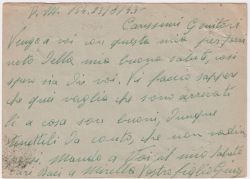 P.M. 152 23/6/43
Carissimi Genitori
Vengo a voi con questa mia per
della mia buona salute, così
spero sia di voi. Vi faccio sapere
che quei vaglia che sono arrivati
a casa son buoni, dunque
conto, che non
Mando a tutti il mio saluto
Baci a Vostro figlio